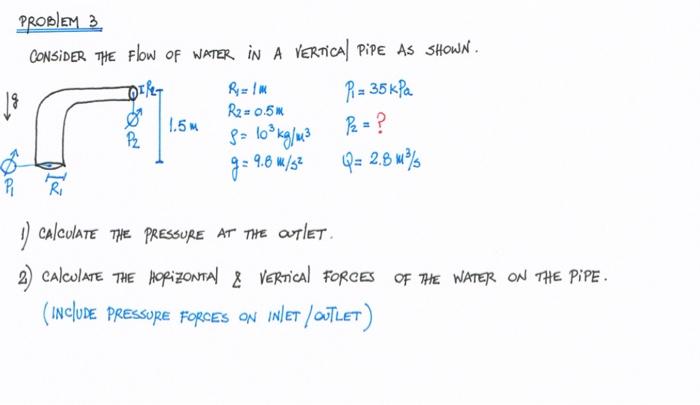 PROBLEM 3
CONSIDER THE FLOW OF WATER IN A VERTICAL PIPE AS SHOWN.
g
R2
R1 = 1 m
P1 = 35 kPa
R2 = 0.5 m
1.5 m
P2
ρ = 10³ kg/m³
P2 = ?
g = 9.8 m/s²
Q = 2.8 m³/s
P1
R1
1) CALCULATE THE PRESSURE AT THE OUTLET.
2) CALCULATE THE HORIZONTAL & VERTICAL FORCES OF THE WATER ON THE PIPE.
(INCLUDE PRESSURE FORCES ON INLET/OUTLET)